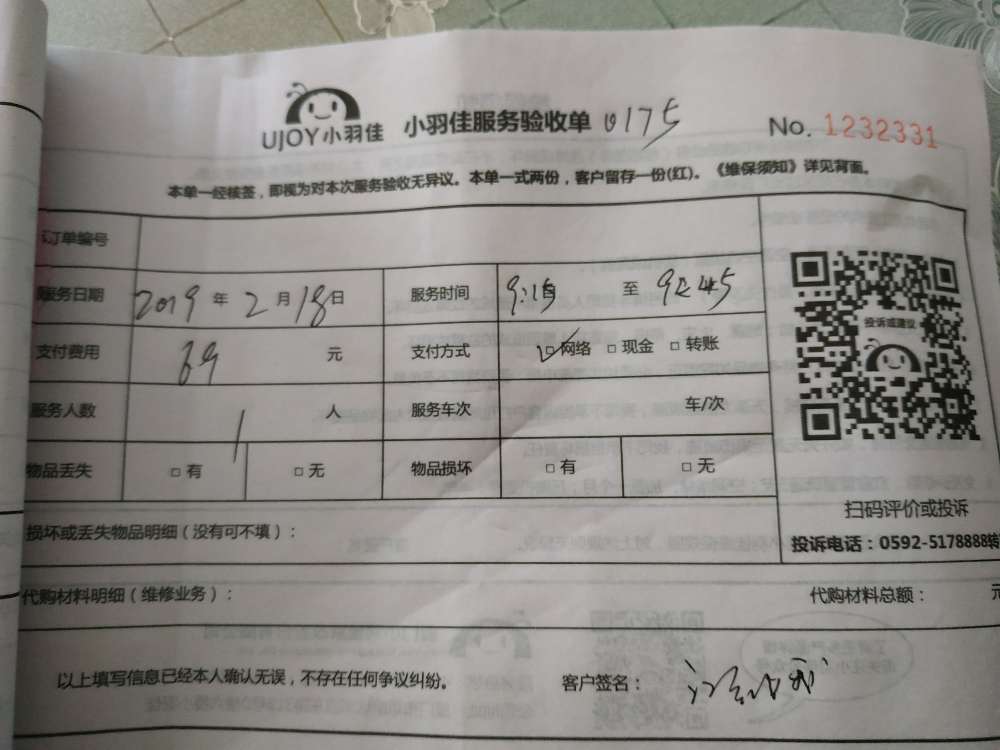 UJOY小羽佳 小羽佳服务验收单 0175 No. 1232331
本单一经核签，即视为对本次服务验收无异议。本单一式两份，客户留存一份(红)。《维保须知》详见背面。
订单编号
服务日期 2019 年 2 月 18 日 服务时间 9:15 至 9:45
支付费用 69 元 支付方式 ☑网络 □现金 □转账
服务人数 1 人 服务车次 车/次
物品丢失 □有 □无 物品损坏 □有 □无
投诉或建议
扫码评价或投诉
投诉电话：0592-5178888转
损坏或丢失物品明细（没有可不填）：
代购材料明细（维修业务）： 代购材料总额： 元
以上填写信息已经本人确认无误，不存在任何争议纠纷。 客户签名：